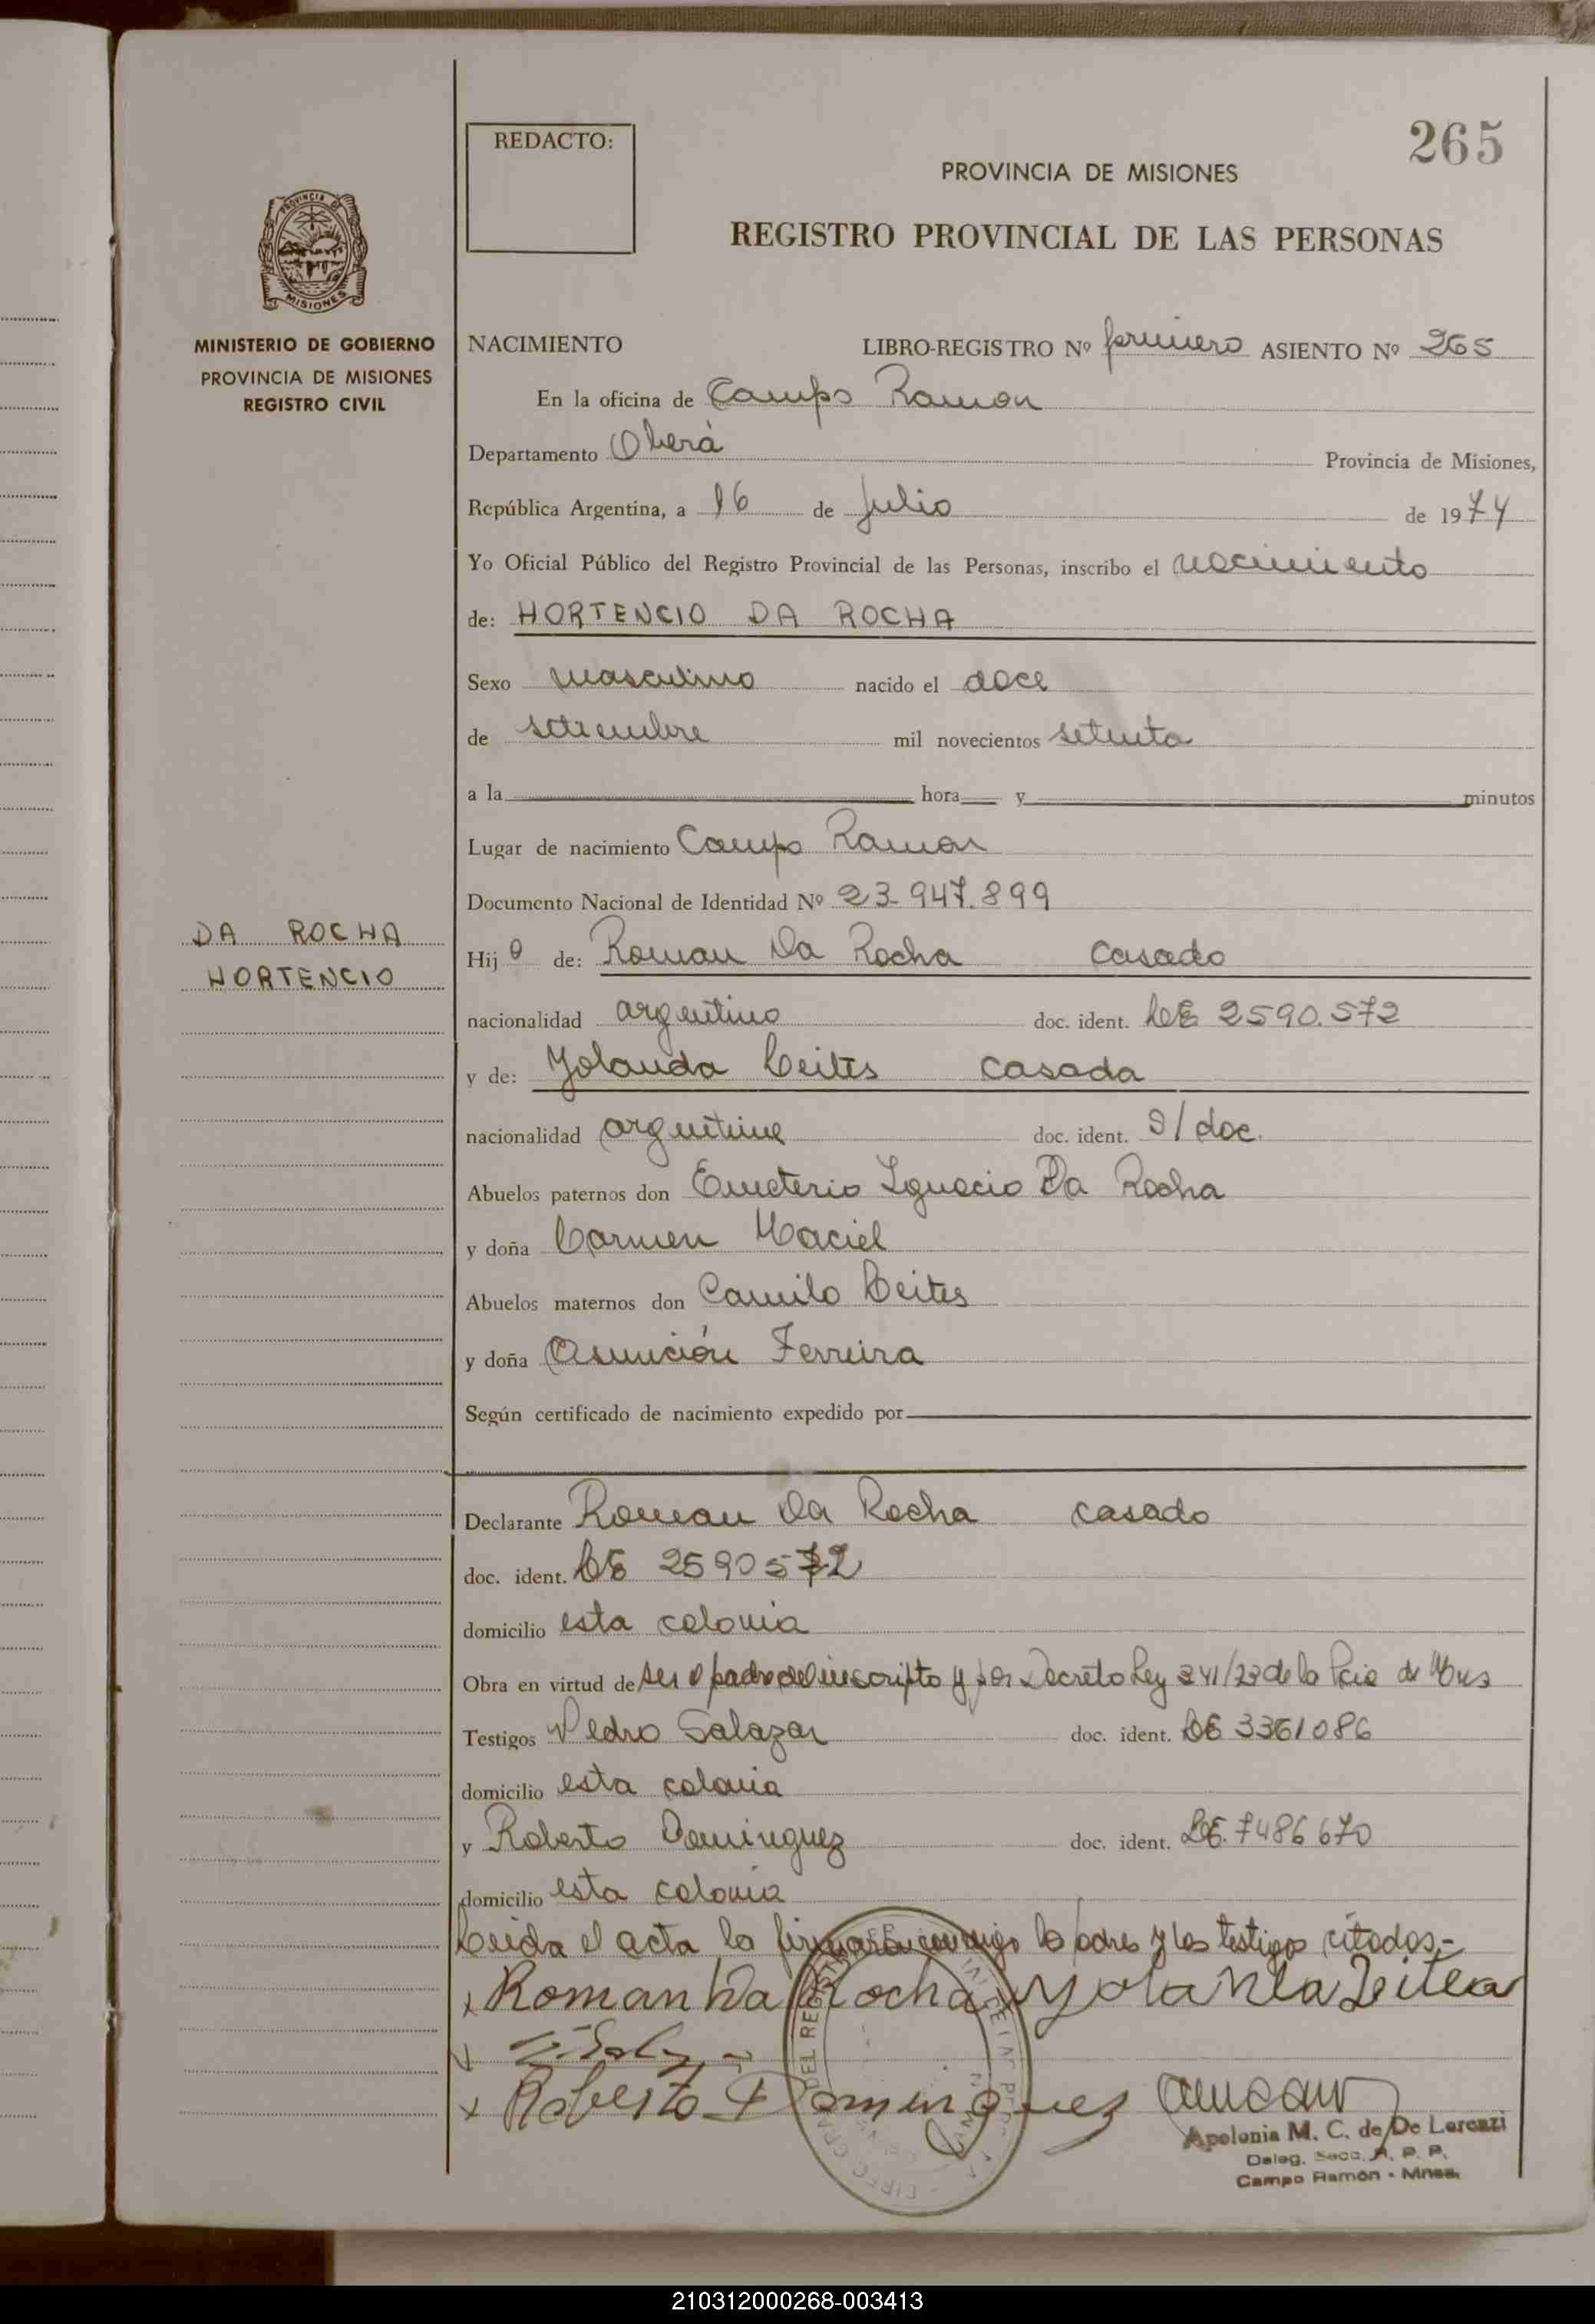 REDACTO:
265
PROVINCIA DE MISIONES
REGISTRO PROVINCIAL DE LAS PERSONAS
PROVINCIA DE
MISIONES
MINISTERIO DE GOBIERNO
PROVINCIA DE MISIONES
REGISTRO CIVIL
NACIMIENTO LIBRO-REGISTRO Nº primero ASIENTO Nº 265
En la oficina de Campo Ramon
Departamento Oberá Provincia de Misiones,
República Argentina, a 16 de Julio de 1974
Yo Oficial Público del Registro Provincial de las Personas, inscribo el nacimiento
de: HORTENCIO DA ROCHA
Sexo masculino nacido el doce
de setiembre mil novecientos setenta
a la hora y minutos
Lugar de nacimiento Campo Ramon
Documento Nacional de Identidad Nº 23.947.899
DA ROCHA
HORTENCIO
Hijo de: Roman Da Rocha casado
nacionalidad argentino doc. ident. LE 2590.572
y de: Yolanda Leites casada
nacionalidad argentina doc. ident. S/doc.
Abuelos paternos don Emeterio Ignacio Da Rocha
y doña Carmen Maciel
Abuelos maternos don Camilo Leites
y doña Asunción Ferreira
Según certificado de nacimiento expedido por
Declarante Roman Da Rocha casado
doc. ident. LE 2590572
domicilio esta colonia
Obra en virtud de ser el padre del inscripto y por Decreto Ley de la Pcia de Mnes
Testigos Pedro Salazar doc. ident. LE 3361086
domicilio esta colonia
y Roberto Dominguez doc. ident. LE. 7486670
domicilio esta colonia
Leida el acta la firmaran conmigo los padres y los testigos citados.-
x Roman Da Rocha x Yolanda Leites
x Roberto Dominguez
Apolonia M. C. de De Lorcazi
Deleg. Secc. R. P. P.
Campo Ramón - Mnes.
210312000268-003413